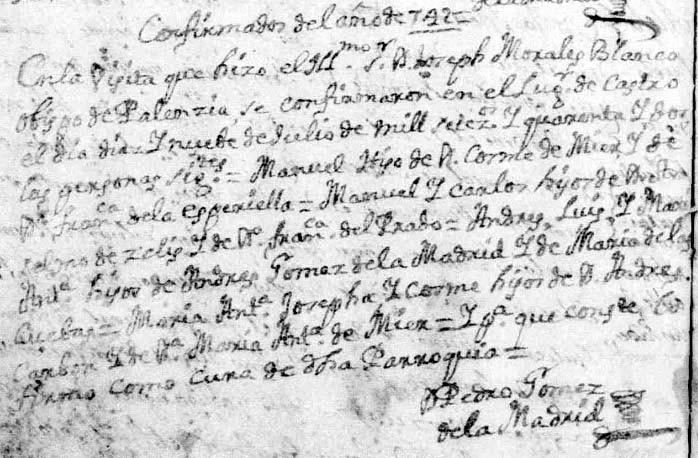 Confirmados del año de 742=
En la Visita que hizo el Ill.mo s.r D. Joseph Morales Blanco
obispo de Palenzia, se confirmaron en el Lug.r de Castro
el dia diez Y nuebe de Julio de mill setez.s Y quarenta Y dos
las personas sig.tes = Manuel Hijo de D. Corme de Mier, Y de
D.a Fran.ca de la esperiella = Manuel Y Carlos hijos de
de zelis Y de D.a Fran.ca del Prado = Andres, Luis, Y Maria
Ant.a hijos de Andres Gomez de la Madrid Y de Maria de las
Cuebas = Maria Ant.a Josepha Y Corme hijos de D. Andres
Carbon Y de D.a Maria Ant.a de Mier = Y p.a que conste, lo
firmo como Cura de dha Parroquia =
D Pedro Gomez
de la Madrid